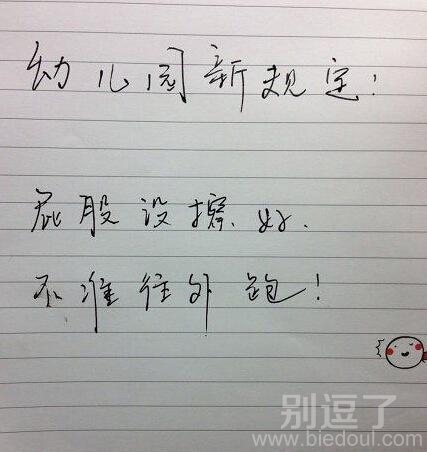 幼儿园新规定!
屁股没擦好.
不准往外跑!
别逗了
www.biedoul.com